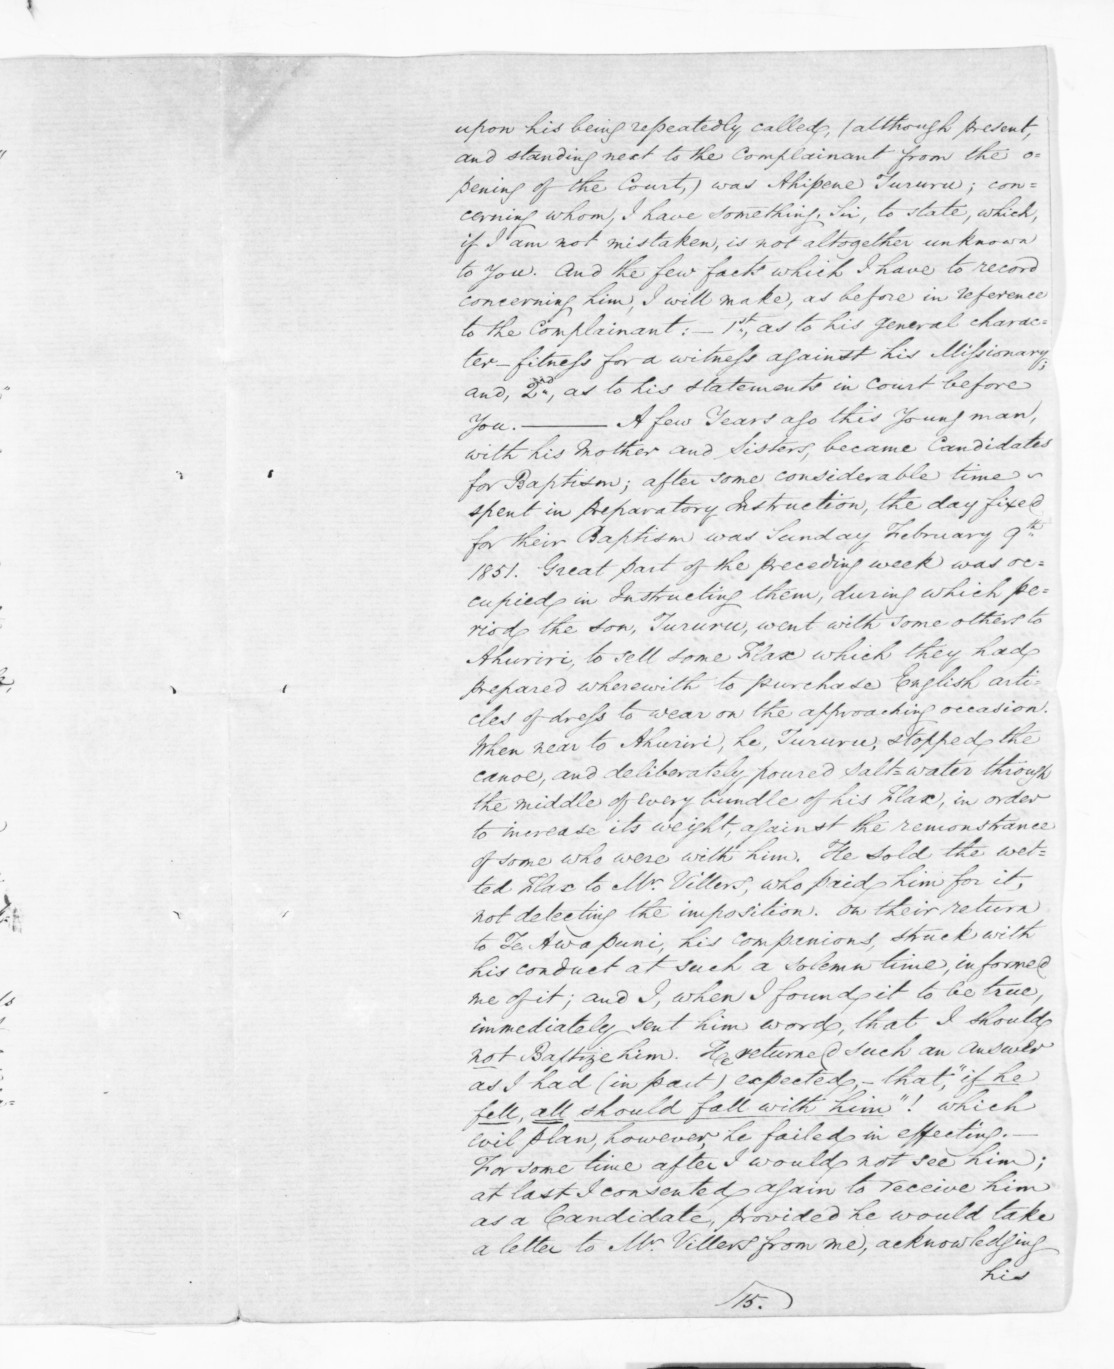 upon his being repeatedly called, (although present,
and standing next to the Complainant from the o=
pening of the Court,) was Ahipene Tururu; con=
cerning whom, I have something, Sir, to state, which,
if I am not mistaken, is not altogether unknown
to You. And the few facts which I have to record
concerning him, I will make, as before in reference
to the Complainant: – 1st., as to his general charac=
ter – fitness for a witness against his Missionary;
and, 2nd., as to his statements in Court before
You. ——— A few Years ago this Young man,
with his Mother and Sisters, became Candidates
for Baptism; after some considerable time ~
spent in preparatory Instruction, the day fixed
for their Baptism was Sunday February 9th.
1851. Great part of the preceding week was oc=
cupied in Instructing them, during which pe=
riod the son, Tururu, went with some others to
Ahuriri, to sell some Flax which they had
prepared wherewith to purchase English arti=
cles of dress to wear on the approaching occasion.
When near to Ahuriri, he, Tururu, stopped the
canoe, and deliberately poured salt=water through
the middle of every bundle of his Flax, in order
to increase its weight, against the remonstrance
of some who were with him. He sold the wet=
ted Flax to Mr. Villers, who paid him for it,
not detecting the imposition. On their return
to Te Awapuni, his companions, struck with
his conduct at such a solemn time, informed
me of it; and I, when I found it to be true,
immediately sent him word, that I should
not Baptize him. He returned such an answer
as I had (in part) expected, – that, "if he
fell, all should fall with him"! which
evil plan, however, he failed in effecting. —
For some time after I would not see him;
at last I consented again to receive him
as a Candidate, provided he would take
a letter to Mr. Villers from me, acknowledging
his
15.